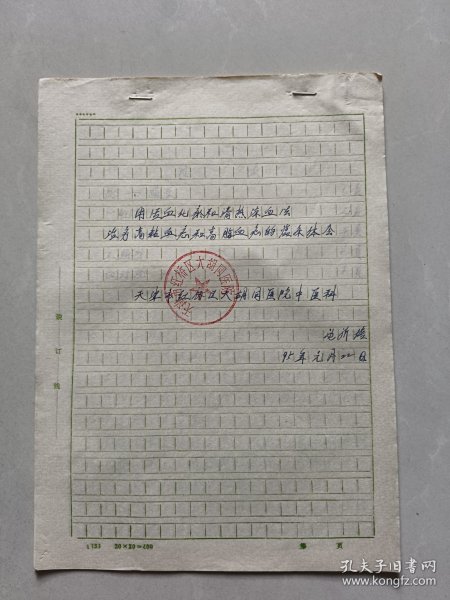 用活血化瘀和清热凉血法
治疗高粘血症和高脂血症的临床体会
天津市红桥区大胡同医院
天津市红桥区大胡同医院中医科
95年元月22日
装订线
(753) 20×20=400
第 页
孔夫子旧书网
www.kongfz.com